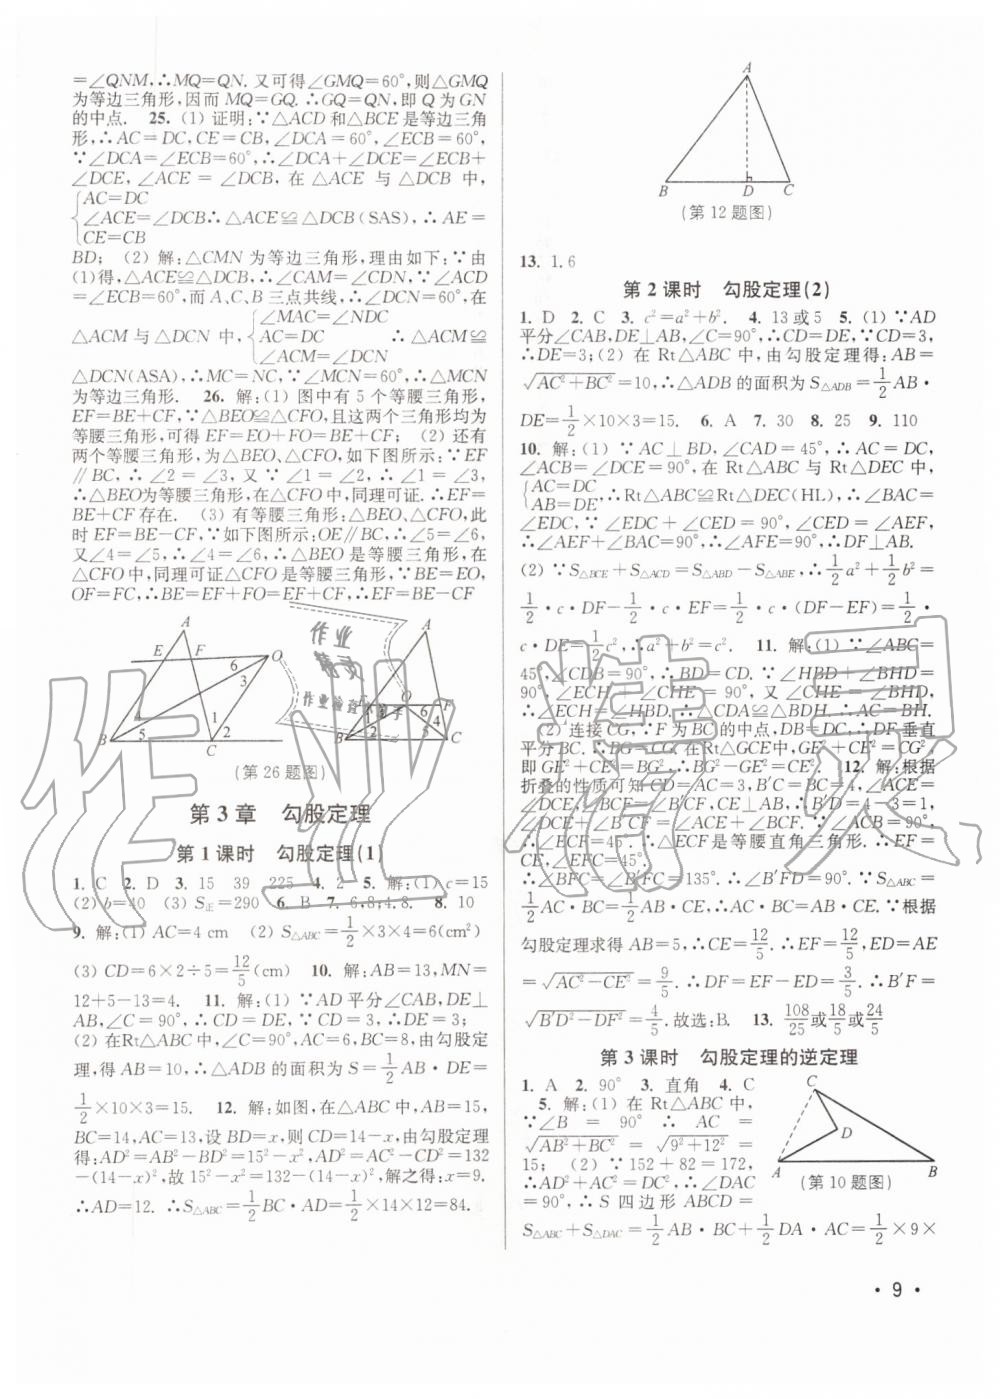 =∠QNM,∴MQ=QN. 又可得∠GMQ=60°,则△GMQ
为等边三角形,因而 MQ=GQ. ∴GQ=QN,即 Q 为 GN
的中点. 25. (1) 证明:∵△ACD和△BCE是等边三角
形,∴AC=DC,CE=CB,∠DCA=60°,∠ECB=60°,
∵∠DCA=∠ECB=60°,∴∠DCA+∠DCE=∠ECB+
∠DCE,∠ACE=∠DCB,在△ACE与△DCB中,
AC=DC
∠ACE=∠DCB∴△ACE≌△DCB(SAS),∴AE=
CE=CB
BD; (2) 解:△CMN 为等边三角形,理由如下:∵由
(1)得,△ACE≌△DCB,∴∠CAM=∠CDN,∵∠ACD
=∠ECB=60°,而A、C、B三点共线,∴∠DCN=60°,在
△ACM与△DCN中,
∠MAC=∠NDC
AC=DC
∠ACM=∠DCN
∴△ACM≌
△DCN(ASA),∴MC=NC,∵∠MCN=60°,∴△MCN
为等边三角形. 26. 解:(1) 图中有5个等腰三角形,
EF=BE+CF,∵△BEO≌△CFO,且这两个三角形均为
等腰三角形,可得EF=EO+FO=BE+CF; (2) 还有
两个等腰三角形,为△BEO、△CFO,如下图所示:∵EF
∥BC,∴∠2=∠3,又∵∠1=∠2,∴∠1=∠3,
∴△BEO为等腰三角形,在△CFO中,同理可证.∴EF=
BE+CF存在. (3) 有等腰三角形:△BEO、△CFO,此
时EF=BE-CF,∵如下图所示:OE∥BC,∴∠5=∠6,
又∠4=∠5,∴∠4=∠6,∴△BEO是等腰三角形,在
△CFO中,同理可证△CFO是等腰三角形,∵BE=EO,
OF=FC,∴BE=EF+FO=EF+CF,∴EF=BE-CF
(第26题图)
第3章 勾股定理
第1课时 勾股定理(1)
1. C 2. D 3. 15 39 225 4. 2 5. 解:(1) c=15
(2) b=40 (3) S正=290 6. B 7. 6,8;4.8. 8. 10
9. 解:(1) AC=4 cm (2) S△ABC=1/2×3×4=6(cm²)
(3) CD=6×2÷5=12/5(cm) 10. 解:AB=13,MN=
12+5-13=4. 11. 解:(1) ∵AD平分∠CAB,DE⊥
AB,∠C=90°,∴CD=DE,∵CD=3,∴DE=3;
(2) 在Rt△ABC中,∠C=90°,AC=6,BC=8,由勾股定
理,得AB=10,∴△ADB的面积为S=1/2AB·DE=
1/2×10×3=15. 12. 解:如图,在△ABC中,AB=15,
BC=14,AC=13,设BD=x,则CD=14-x,由勾股定理
得:AD²=AB²-BD²=15²-x²,AD²=AC²-CD²=132
-(14-x)²,故15²-x²=132-(14-x)²,解之得:x=9.
∴AD=12. ∴S△ABC=1/2BC·AD=1/2×14×12=84.
A
B D C
(第12题图)
13. 1.6
第2课时 勾股定理(2)
1. D 2. C 3. c²=a²+b². 4. 13或5 5. (1) ∵AD
平分∠CAB,DE⊥AB,∠C=90°,∴CD=DE,∵CD=3,
∴DE=3;(2) 在Rt△ABC中,由勾股定理得:AB=
√AC²+BC²=10,∴△ADB的面积为S△ADB=1/2AB·
DE=1/2×10×3=15. 6. A 7. 30 8. 25 9. 110
10. 解:(1) ∵AC⊥BD,∠CAD=45°,∴AC=DC,
∠ACB=∠DCE=90°,在Rt△ABC与Rt△DEC中,
AC=DC
AB=DE
∴Rt△ABC≌Rt△DEC(HL),∴∠BAC=
∠EDC,∵∠EDC+∠CED=90°,∠CED=∠AEF,
∴∠AEF+∠BAC=90°,∴∠AFE=90°,∴DF⊥AB.
(2) ∵S△BCE+S△ACD=S△ABD-S△ABE,∴1/2a²+1/2b²=
1/2·c·DF-1/2·c·EF=1/2·c·(DF-EF)=1/2·
c·DE=1/2c²,∴a²+b²=c². 11. 解:(1) ∵∠ABC=
45°,∠CDB=90°,∴BD=CD.∵∠HBD+∠BHD=
90°,∠ECH+∠CHE=90°,又∠CHE=∠BHD,
∴∠ECH=∠HBD,∴△CDA≌△BDH.∴AC=BH.
(2) 连接CG,∵F为BC的中点,DB=DC,∴DF垂直
平分BC.∴BG=CG,在Rt△GCE中,GE²+CE²=CG²,
即GE²+CE²=BG²,∴BG²-GE²=CE². 12. 解:根据
折叠的性质可知CD=AC=3,B′C=BC=4,∠ACE=
∠DCE,∠BCF=∠B′CF,CE⊥AB,∴B′D=4-3=1,
∠DCE+∠B′CF=∠ACE+∠BCF.∵∠ACB=90°,
∴∠ECF=45°.∴△ECF是等腰直角三角形.∴EF=
CE,∠EFC=45°,
∴∠BFC=∠B′FC=135°.∴∠B′FD=90°.∵S△ABC=
1/2AC·BC=1/2AB·CE,∴AC·BC=AB·CE.∵根据
勾股定理求得AB=5,∴CE=12/5.∴EF=12/5,ED=AE
=√AC²-CE²=9/5.∴DF=EF-ED=3/5.∴B′F=
√B′D²-DF²=4/5.故选:B. 13. 108/25或18/5或24/5
第3课时 勾股定理的逆定理
1. A 2. 90° 3. 直角 4. C
5. 解:(1) 在Rt△ABC中,
∵∠B=90°∴AC=
√AB²+BC²=√9²+12²=
15; (2) ∵152+82=172,
∴AD²+AC²=DC²,∴∠DAC
=90°,∴S四边形ABCD=
S△ABC+S△DAC=1/2AB·BC+1/2DA·AC=1/2×9×
C
D
A B
(第10题图)
·9·
作业精灵